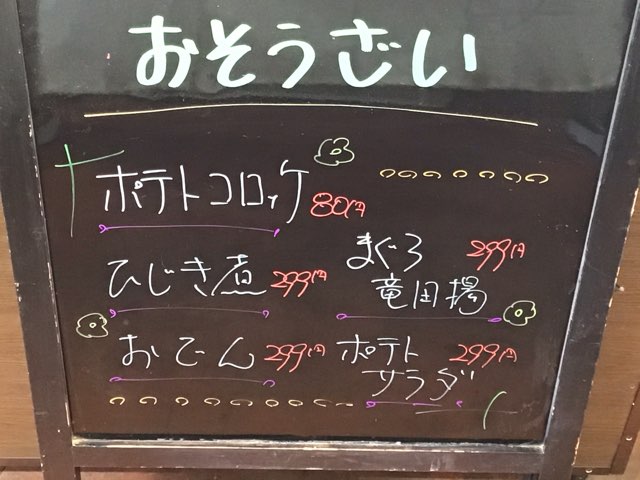 おそうざい
ポテトコロッケ 80円
ひじき煮 299円
まぐろ 299円
竜田揚
おでん 299円
ポテト 299円
サラダ